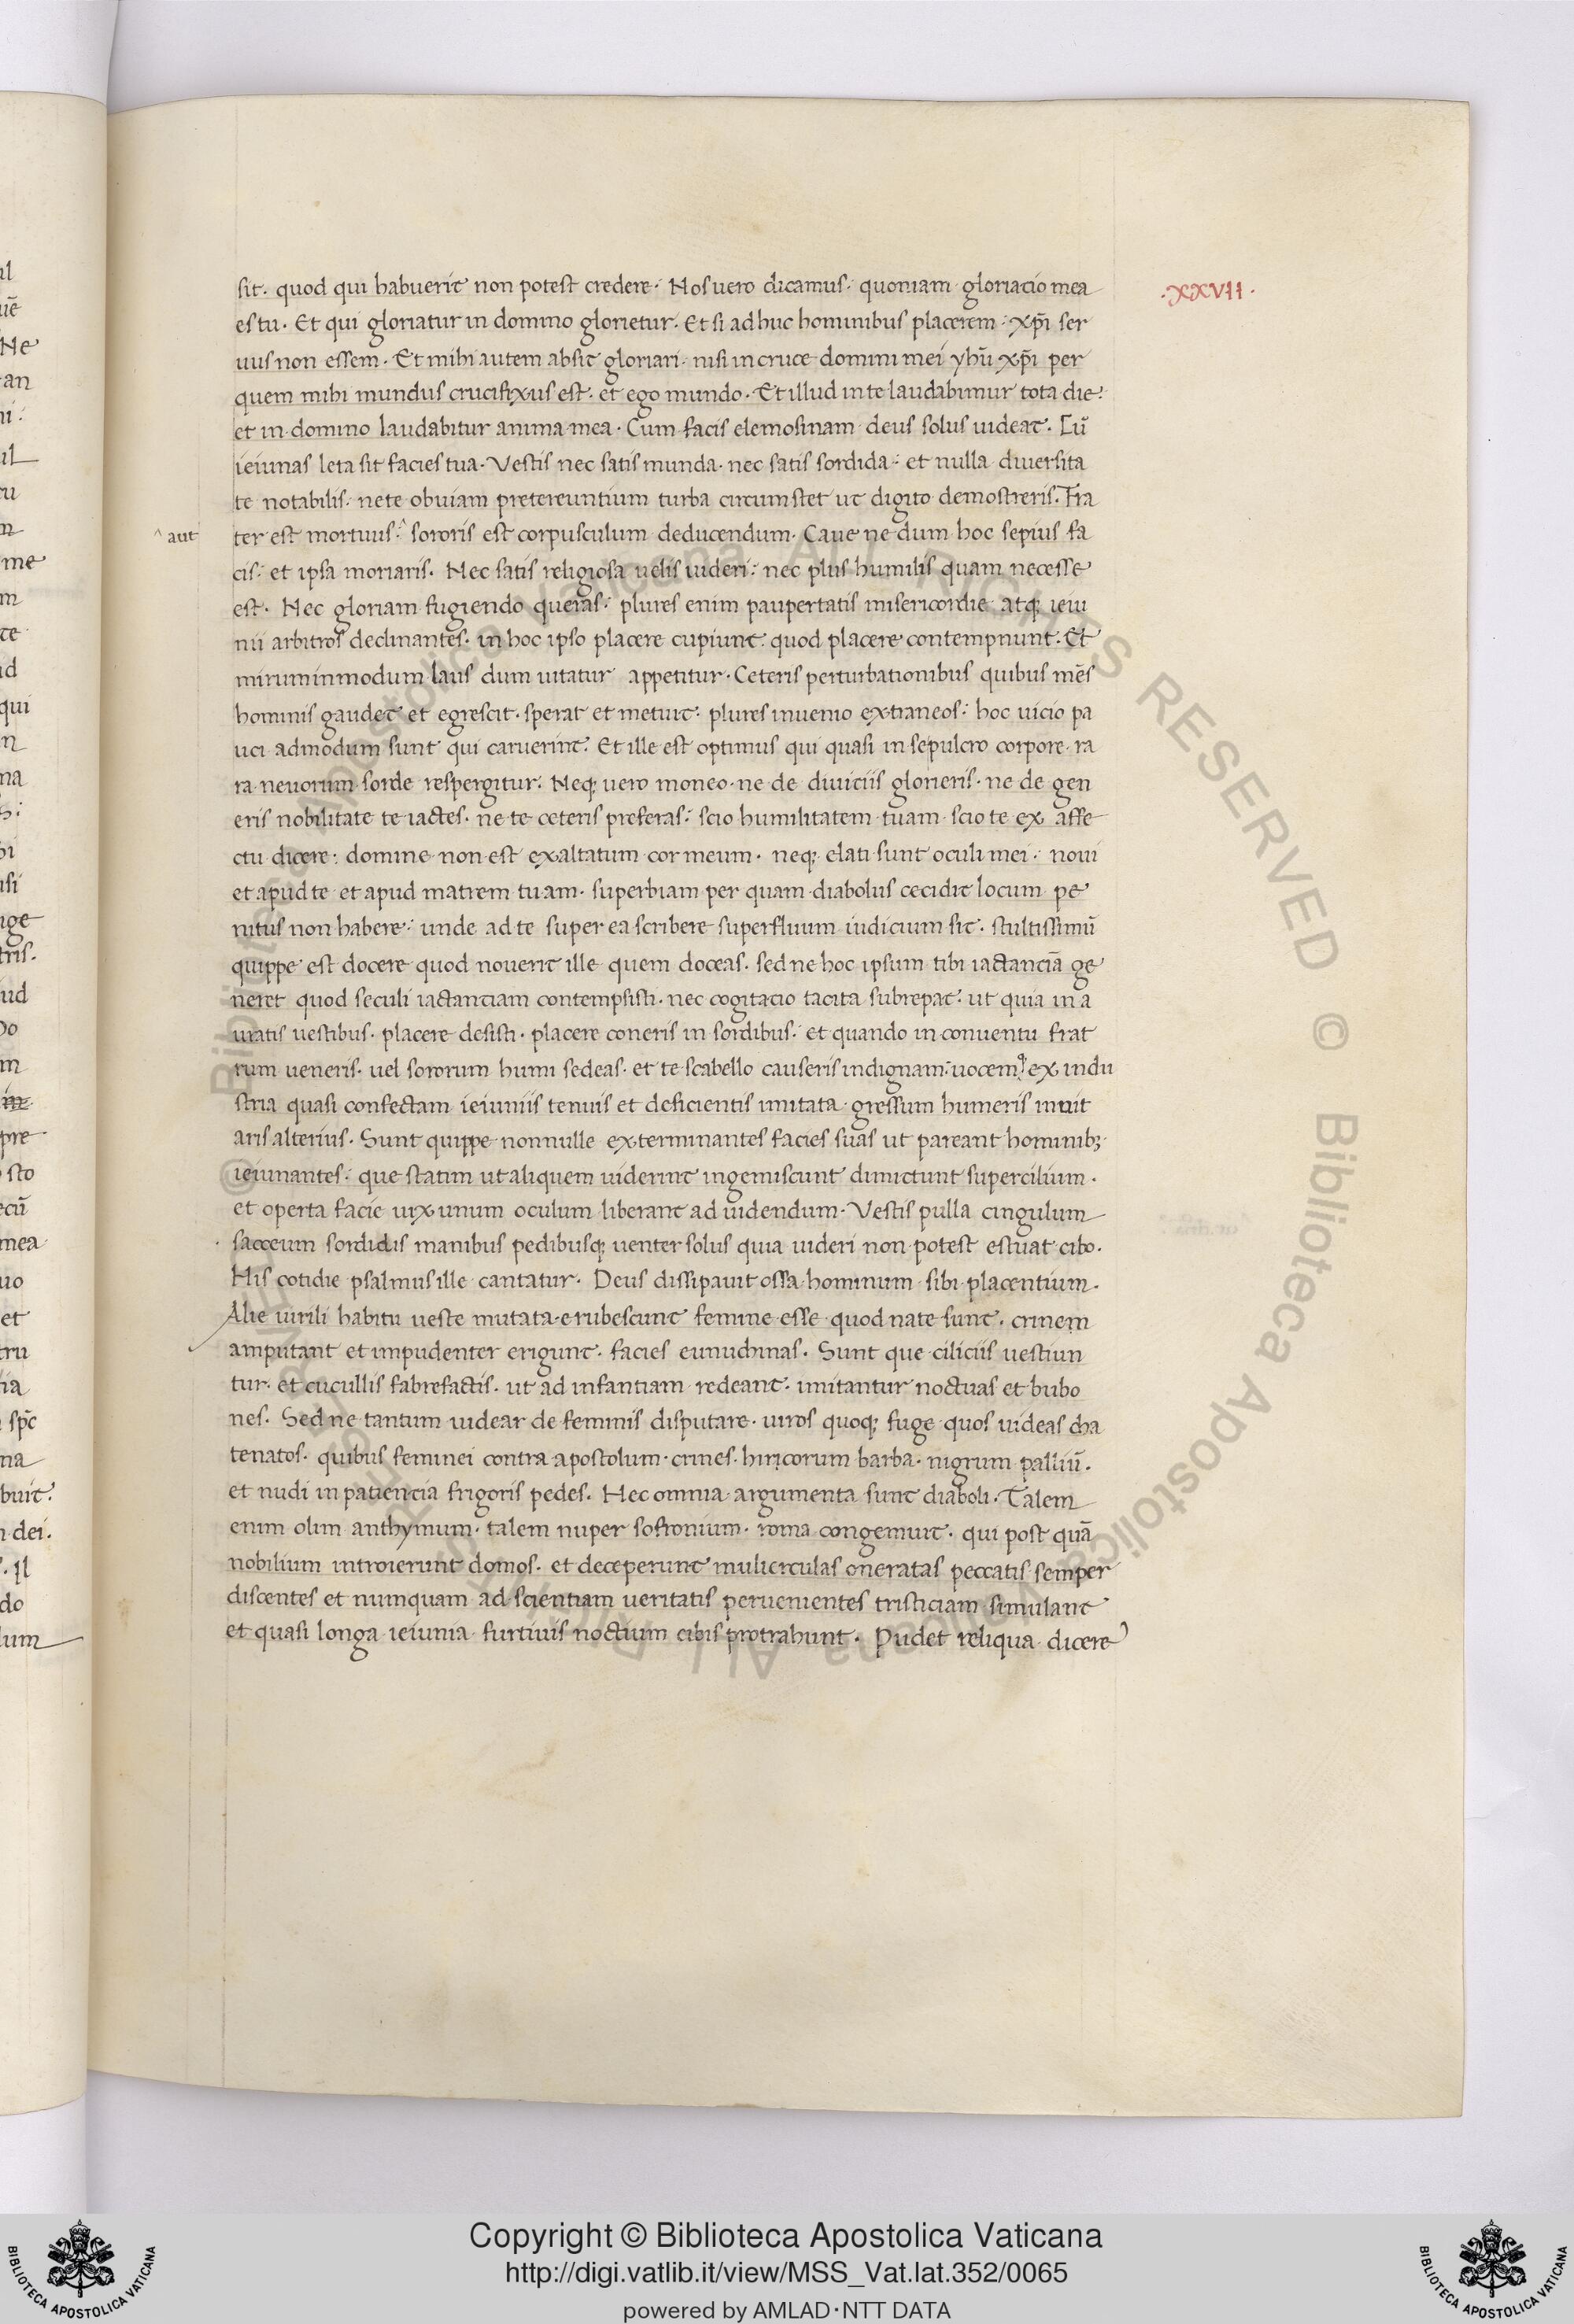 sit. quod qui habuerit non potest credere. Nos uero dicamus. quoniam gloriacio mea
es tu. Et qui gloriatur in domino glorietur. Et si ad huc hominibus placerem xp̄i ser
uus non essem. Et mihi autem absit gloriari. nisi in cruce domini mei yhū xp̄i per
quem mihi mundus crucifixus est. et ego mundo. Et illud in te laudabimur tota die.
et in domino laudabitur anima mea. Cum facis elemosinam deus solus uideat. Cū
ieiunas leta sit facies tua. Vestis nec satis munda. nec satis sordida. et nulla diuersita
te notabilis. ne te obuiam pretereuntium turba circumstet ut digito demostreris. Fra
ter est mortuus.^ sororis est corpusculum deducendum. Caue ne dum hoc sepius fa
cis. et ipsa moriaris. Nec satis religiosa uelis uideri. nec plus humilis quam necesse
est. Nec gloriam fugiendo queras. plures enim paupertatis misericordie atq; ieiu
nii arbitros declinantes. in hoc ipso placere cupiunt. quod placere contempnunt. Et
mirum in modum laus dum uitatur appetitur. Ceteris perturbationibus quibus mēs
hominis gaudet et egrescit. sperat et metuit. plures inuenio extraneos. hoc uicio pa
uci admodum sunt qui caruerint. Et ille est optimus qui quasi in sepulcro corpore. ra
ra neuorum sorde respergitur. Neq; uero moneo ne de diuiciis glorieris. ne de gen
eris nobilitate te iactes. ne te ceteris preferas. scio humilitatem tuam scio te ex affe
ctu dicere. domine non est exaltatum cor meum. neq; elati sunt oculi mei. noui
et apud te et apud matrem tuam. superbiam per quam diabolus cecidit locum pe
nitus non habere. unde ad te super ea scribere superfluum iudicium sit. stultissimū
quippe est docere quod nouerit ille quem doceas. sed ne hoc ipsum tibi iactanciā ge
neret quod seculi iactanciam contempsisti. nec cogitacio tacita subrepat. ut quia in a
uratis uestibus. placere desisti. placere coneris in sordibus. et quando in conuentu frat
rum ueneris. uel sororum humi sedeas. et te scabello causeris indignam. uocem ex indu
stria quasi confectam ieiuniis tenuis et deficientis imitata gressum humeris innit
aris alterius. Sunt quippe nonnulle exterminantes facies suas ut pareant hominib;
ieiunantes. que statim ut aliquem uiderint ingemiscunt dimictunt supercilium.
et operta facie uix unum oculum liberant ad uidendum. Vestis pulla cingulum
sacceum sordidis manibus pedibusq; uenter solus quia uideri non potest estuat cibo.
His cotidie psalmus ille cantatur. Deus dissipauit ossa hominum sibi placentium.
Alie uirili habitu ueste mutata erubescunt femine esse quod nate sunt. crinem
amputant et impudenter erigunt. facies eunuchinas. Sunt que ciliciis uestiun
tur. et cucullis fabrefactis. ut ad infantiam redeant. imitantur noctuas et bubo
nes. Sed ne tantum uidear de feminis disputare. uiros quoq; fuge quos uideas cha
tenatos. quibus feminei contra apostolum. crines. hircorum barba. nigrum palliū.
et nudi in patiencia frigoris pedes. Hec omnia argumenta sunt diaboli. Talem
enim olim anthymum. talem nuper sofronium. roma congemuit. qui post quā
nobilium introierunt domos. et deceperunt mulierculas oneratas peccatis semper
discentes et numquam ad scientiam ueritatis peruenientes tristiciam simulant
et quasi longa ieiunia furtiuis noctium cibis protrahunt. Pudet reliqua dicere
^ aut
.XXVII.
Copyright © Biblioteca Apostolica Vaticana
http://digi.vatlib.it/view/MSS_Vat.lat.352/0065
powered by AMLAD·NTT DATA